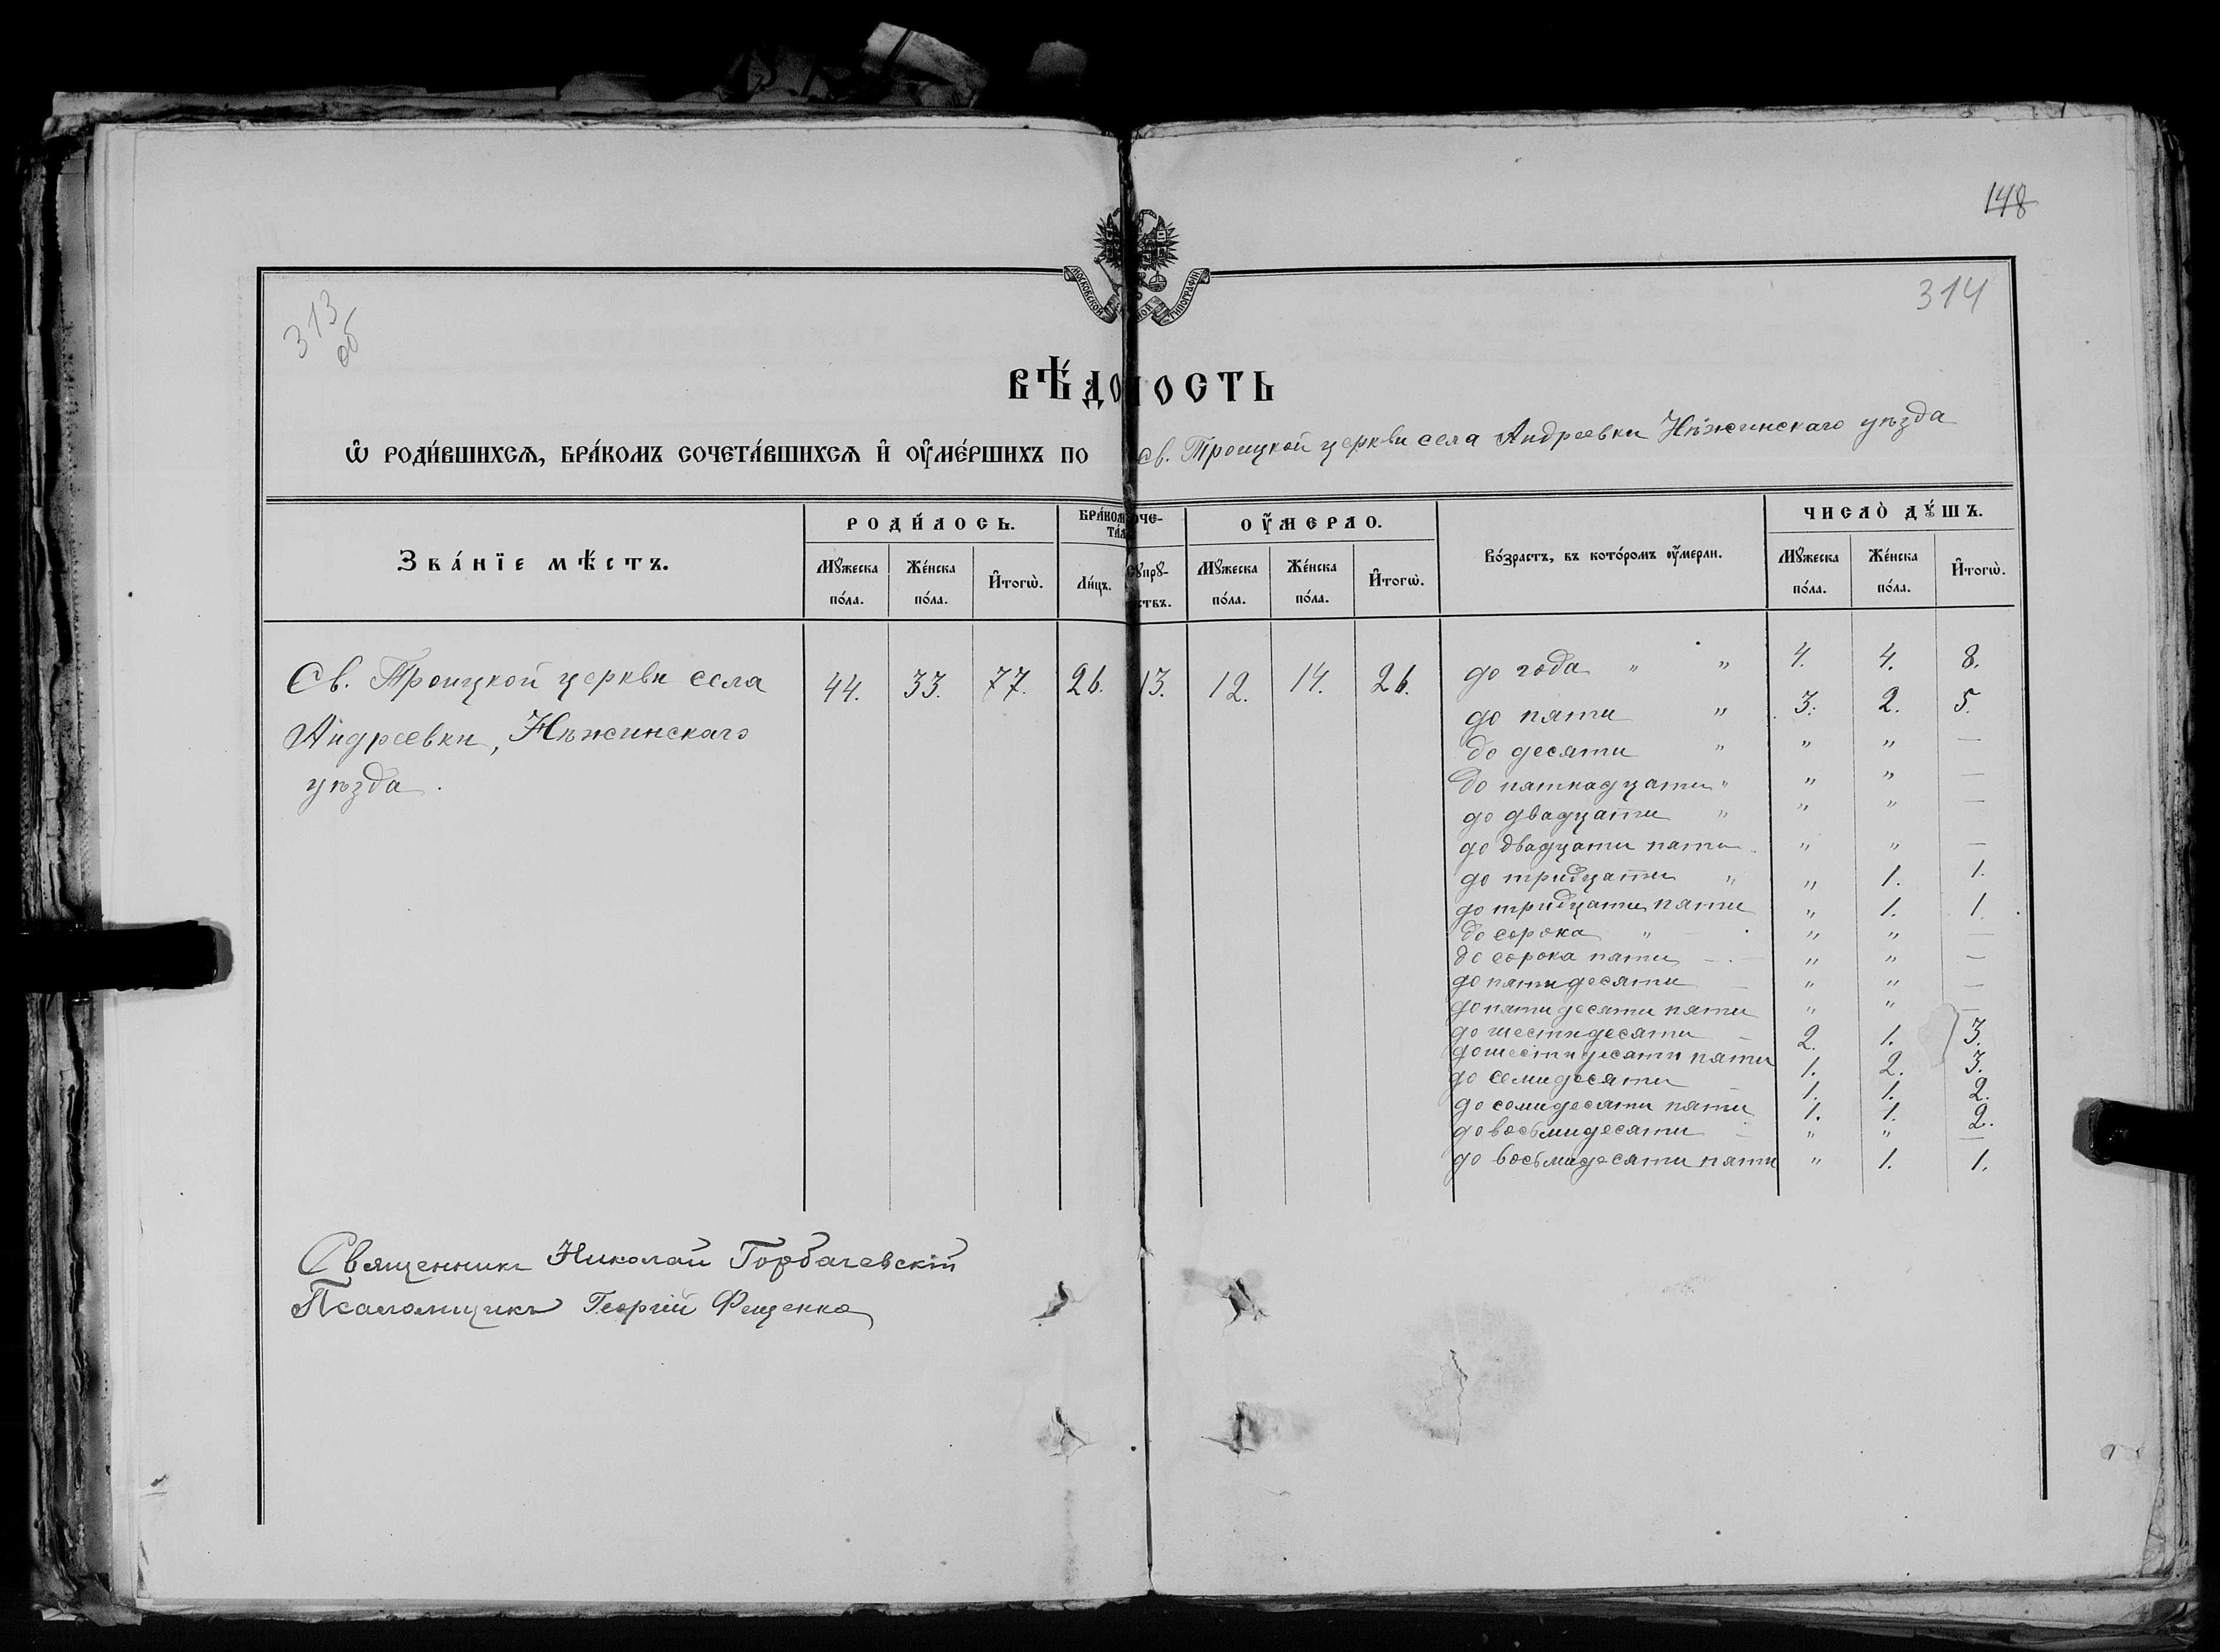 148
313
об
314
МОСКОВСКОЙ ТИПОГРАФІИ
ВѢ́ДОМОСТЬ
Ѡ҆ РОДИ́ВШИХСѦ, БРА́КОМЪ СОЧЕТА́ВШИХСѦ И҆ ОУ҆МЕ́РШИХЪ ПО Св. Троицкой церкви села Андреевки Нѣжинскаго уѣзда
Зва́нїе мѣ́стъ.
РОДИ́ЛОСЬ.
Мꙋ́жеска по́ла.
Же́нска по́ла.
И҆тогѡ̀.
БРА́КОМ СОЧЕ-ТА́Л
Ли́цъ.
Сꙋпрꙋ́-ствъ.
ОУ҆́МЕРЛО.
Мꙋ́жеска по́ла.
Же́нска по́ла.
И҆тогѡ̀.
Во́зрастъ, въ кото́ромъ оу҆́мерли.
ЧИСЛО̀ ДꙊ́ШЪ.
Мꙋ́жеска по́ла.
Же́нска по́ла.
И҆тогѡ̀.
Св. Троицкой церкви села
Андреевки, Нѣжинскаго
уѣзда.
44. 33. 77. 26. 13. 12. 14. 26.
до года " " 4. 4. 8.
до пяти " 3. 2. 5.
до десяти " " " —
до пятнадцати " " " —
до двадцати " " " —
до двадцати пяти " " —
до тридцати " " 1. 1.
до тридцати пяти " 1. 1.
до сорока " " " —
до сорока пяти — " " —
до пятидесяти — " " —
до пятидесяти пяти " " —
до шестидесяти — 2. 1. 3.
до шестидесяти пяти 1. 2. 3.
до семидесяти — 1. 1. 2.
до семидесяти пяти 1. 1. 2.
до восьмидесяти — " " —
до восьмидесяти пяти " 1. 1.
Священникъ Николай Горбачевскій
Псаломщикъ Георгій Фещенко